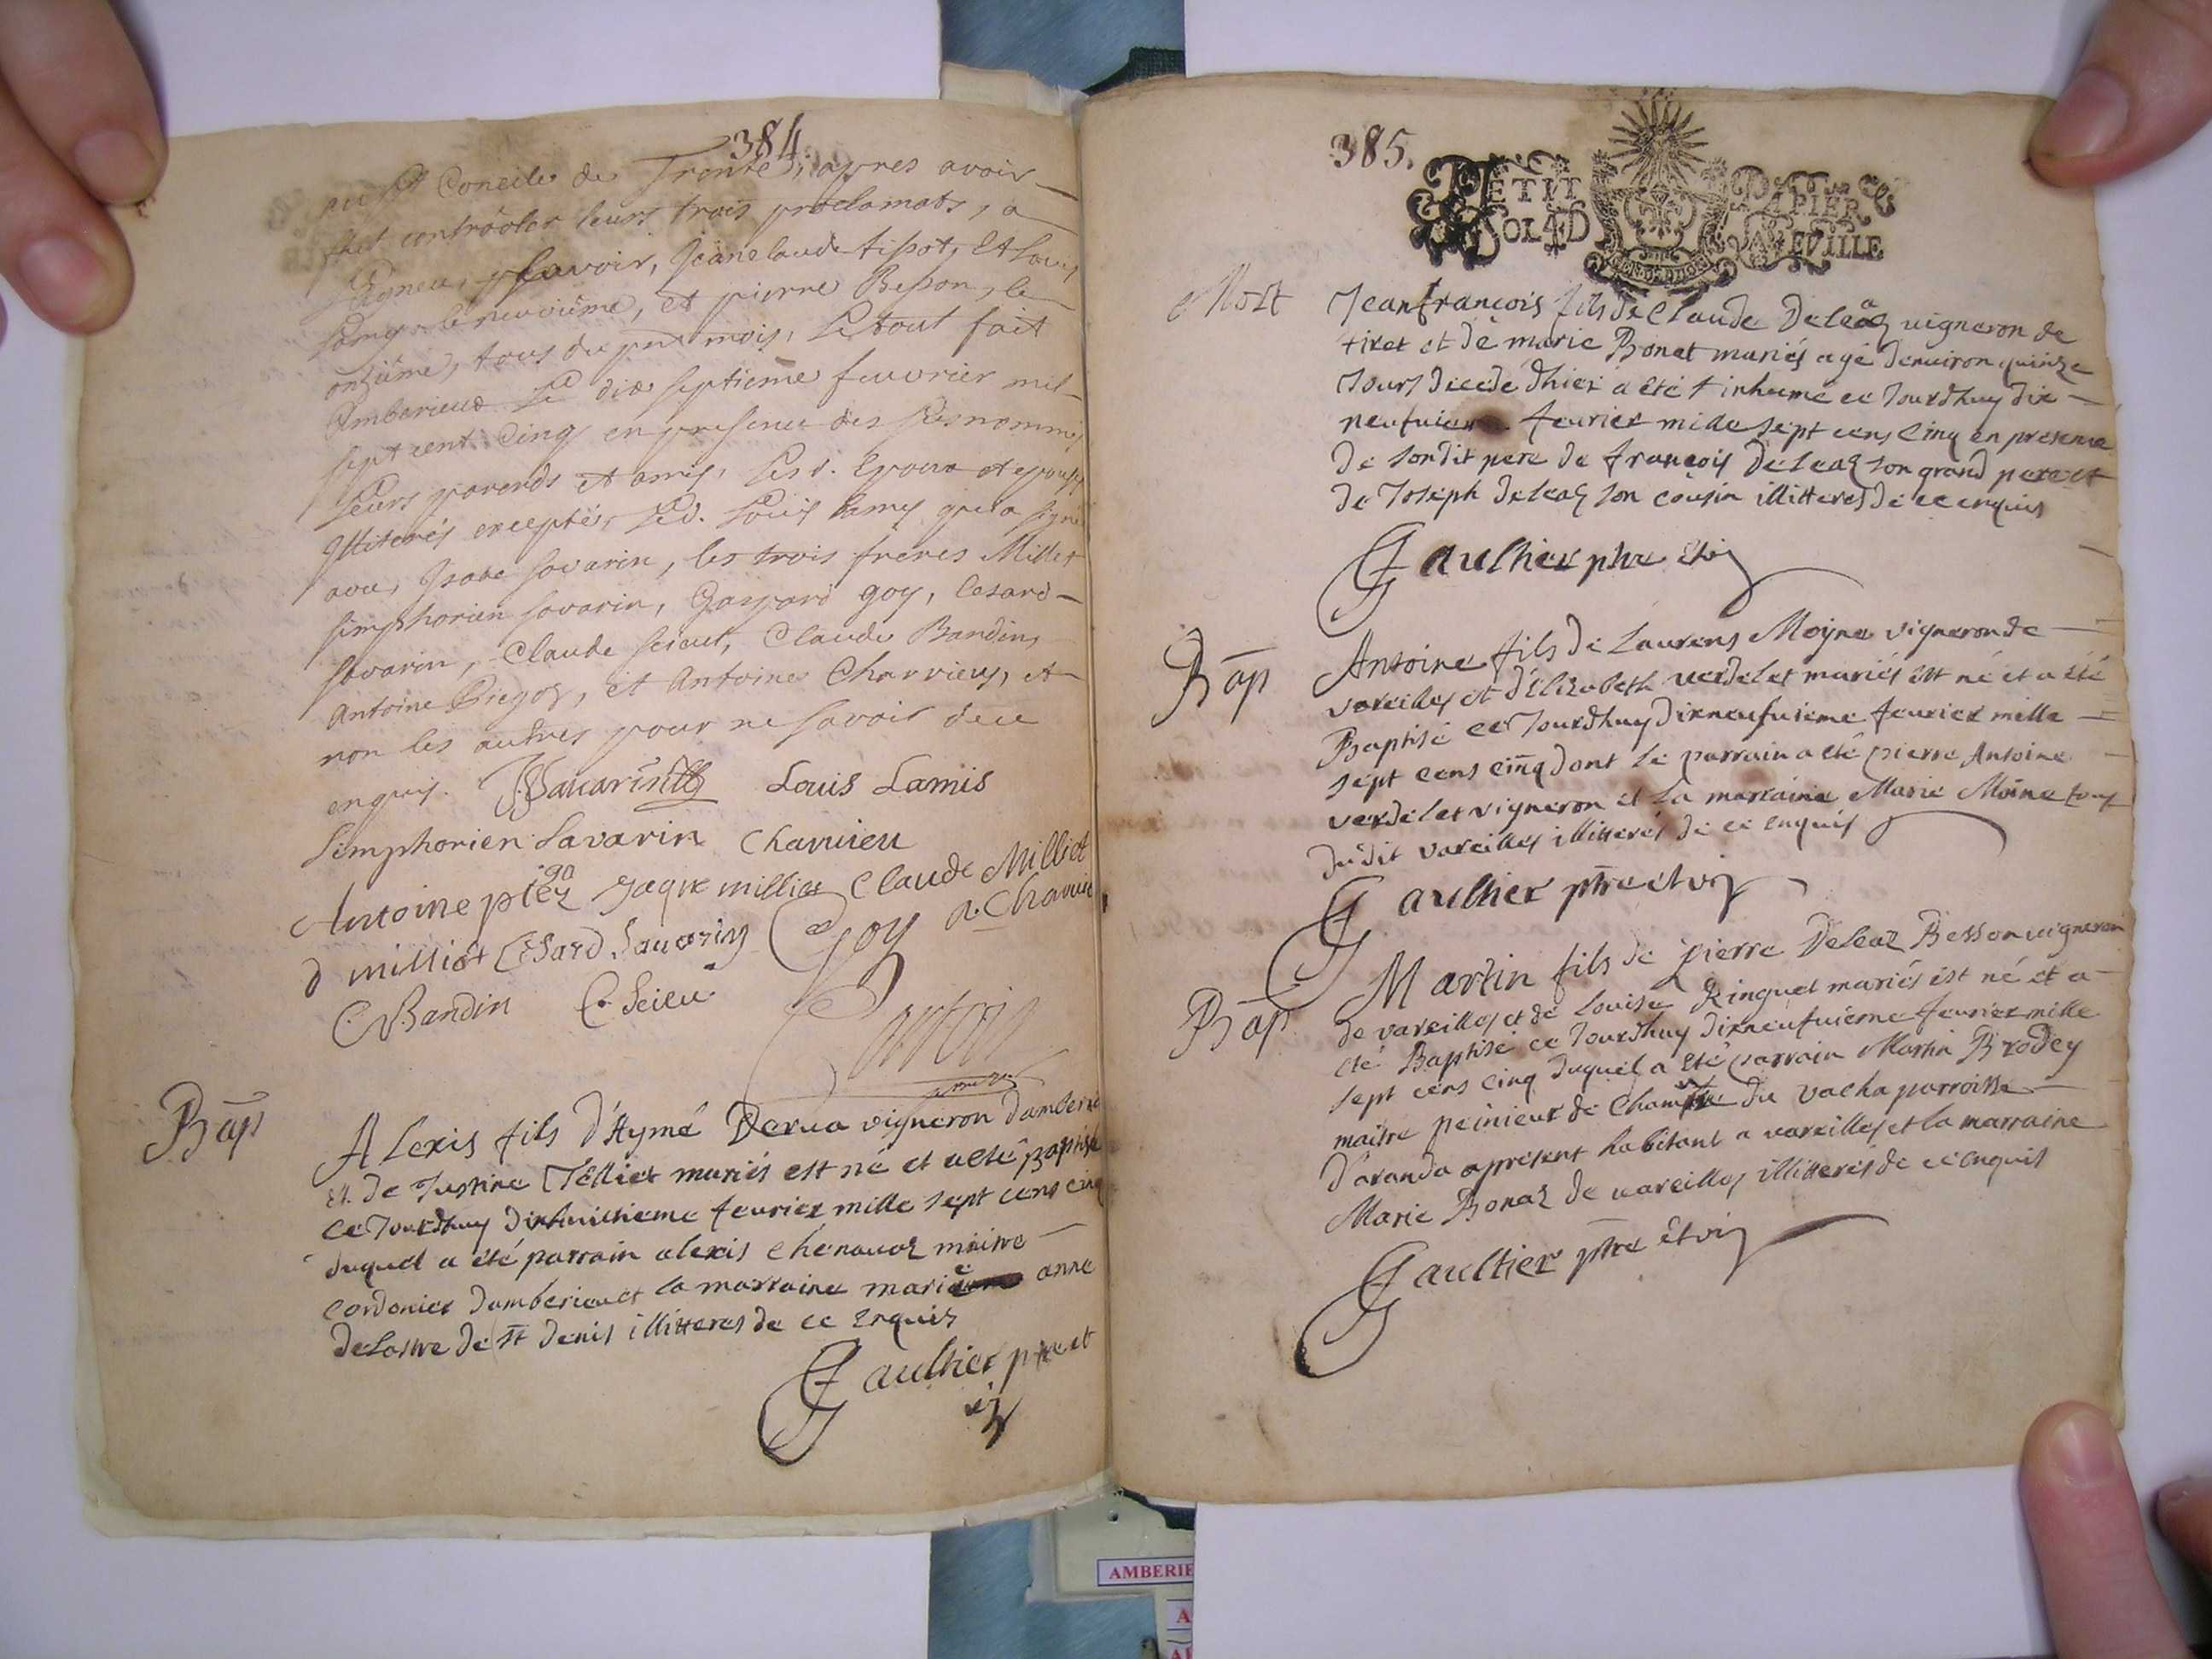 384
Concile de Trente, apres avoir
fait controoler leurs trois proclamats, a
Lagneu, scavoir, Jeanclaude tissot, Et Louys
Lamy le neuvieme, et pierre Besson, le
onzieme, tous du pnt mois, Le tout fait
Ambarieux Le dixseptieme feuvrier mil
sept cent Cinq en presence des susnommés
Leurs parends et amis, Les d. Epoux et epouse
Illiterés exceptés, Led. Louis Lamy qui a signé
avec, Isabe savarin, les trois freres Milliet
simphorien savarin, Gaspard goy, Cesard
savarin, Claude scieut, Claude Bandin,
Antoine Pregoz, et Antoine Charvieu, et
non les autres pour ne savoir de ce
enquis. Savarin Louis Lamis
Simphorien Savarin Charvieu
Antoine Jaque milliet Claude Milliet
d milliet Cesard Sauarin Goy a. Charuieu
C. Bandin C. Scieu
Bap
Alexis fils d'Aymé Derua vigneron damberieu
et de Justine Tellier mariés est né et a eté Baptisé
ce Jourdhuy dixhuitieme feurier mille sept cens cinq
duquel a été parrain alexis chenauaz maitre
cordonier damberieu et la marraine marie anne
Delastre de st denis illitteres de ce Enquis
Gaultier ptre et
vi
385.
PETIT PAPIER
SOL 4 D VEVILLE
Mort
Jeanfrancois fils de Claude Deleaz vigneron de
tiret et de marie Bonat mariés agé denuiron quinze
Jours decede dhier a eté inhumé ce Jourdhuy dix
neufuieme feurier mille sept cens cinq en presence
de sondit pere de françois Deleaz son grand pere et
de Joseph deleaz son cousin illitterés de ce enquis
Gaultier ptre et vi
Bap
Antoine fils de Laurens Moyne vigneron de
vareilles et d'Elizabeth verdelet mariés est né et a été
Baptisé ce Jourdhuy dixneufuieme feurier mille
sept cens cinq dont le parrain a eté pierre Antoine
verdelet vigneron et la marraine Marie Moine tous
dudit vareilles illitterés de ce enquis
Gaultier ptre et vi
Bap
Martin fils de pierre Deleaz Besson uigneron
de vareilles et de Louise Ringuet mariés est né et a
été Baptisé ce Jourdhuy dixneufuieme feurier mille
sept cens cinq duquel a eté parrain Martin Brodey
maitre peinieur de du vacha parroisse
d'aranda apresent habitant a vareilles et la marraine
Marie Bonaz de uareilles illitterés de ce enquis
Gaultier ptre et vi
AMBERIE
A